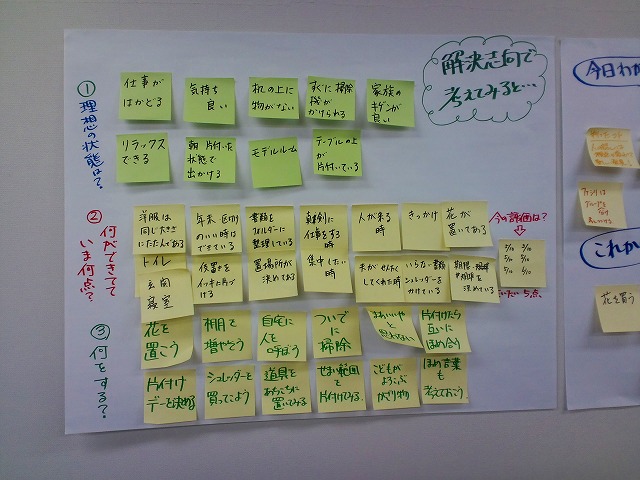 解決志向で
考えてみると…
①理想の状態は?
仕事が
はかどる
気持ち
良い
机の上に
物がない
すぐに掃除
機が
かけられる
家族の
キゲンが
良い
リラックス
できる
朝片付いた
状態で
出かける
モデルルーム
テーブルの上
が
片付いている
②何ができてて
いま何点?
洋服は
同じ大きさ
にたたんである
年末・区切
のいい時は
できている
書類を
フォルダーに
整理している
真剣に
仕事をする時
人が来る
時
きっかけ
花が
置いてある
今の評価は?
トイレ
玄関
寝室
仮置きを
イッキに片づ
ける
置場所が
決めてある
集中したい
時
夫がせんたく
してくれた時
いらない書類
シュレッダーを
かけている
決めている
だいたい5点
③何をする?
花を
置こう
相月で
増やそう
自宅に
人を
呼ぼう
ついでに
掃除
まぁいいやと
思わない
片付けたら
互いに
ほめ合う
片付け
デーを決める
シュレッダーと
買ってこよう
道具を
あちこちに
置いてみる
せまい範囲
を
片付けてみる
こどもが
よろこぶ
かざり物
ほめ言葉
も
考えておこう
今日わか
これか
花を買う